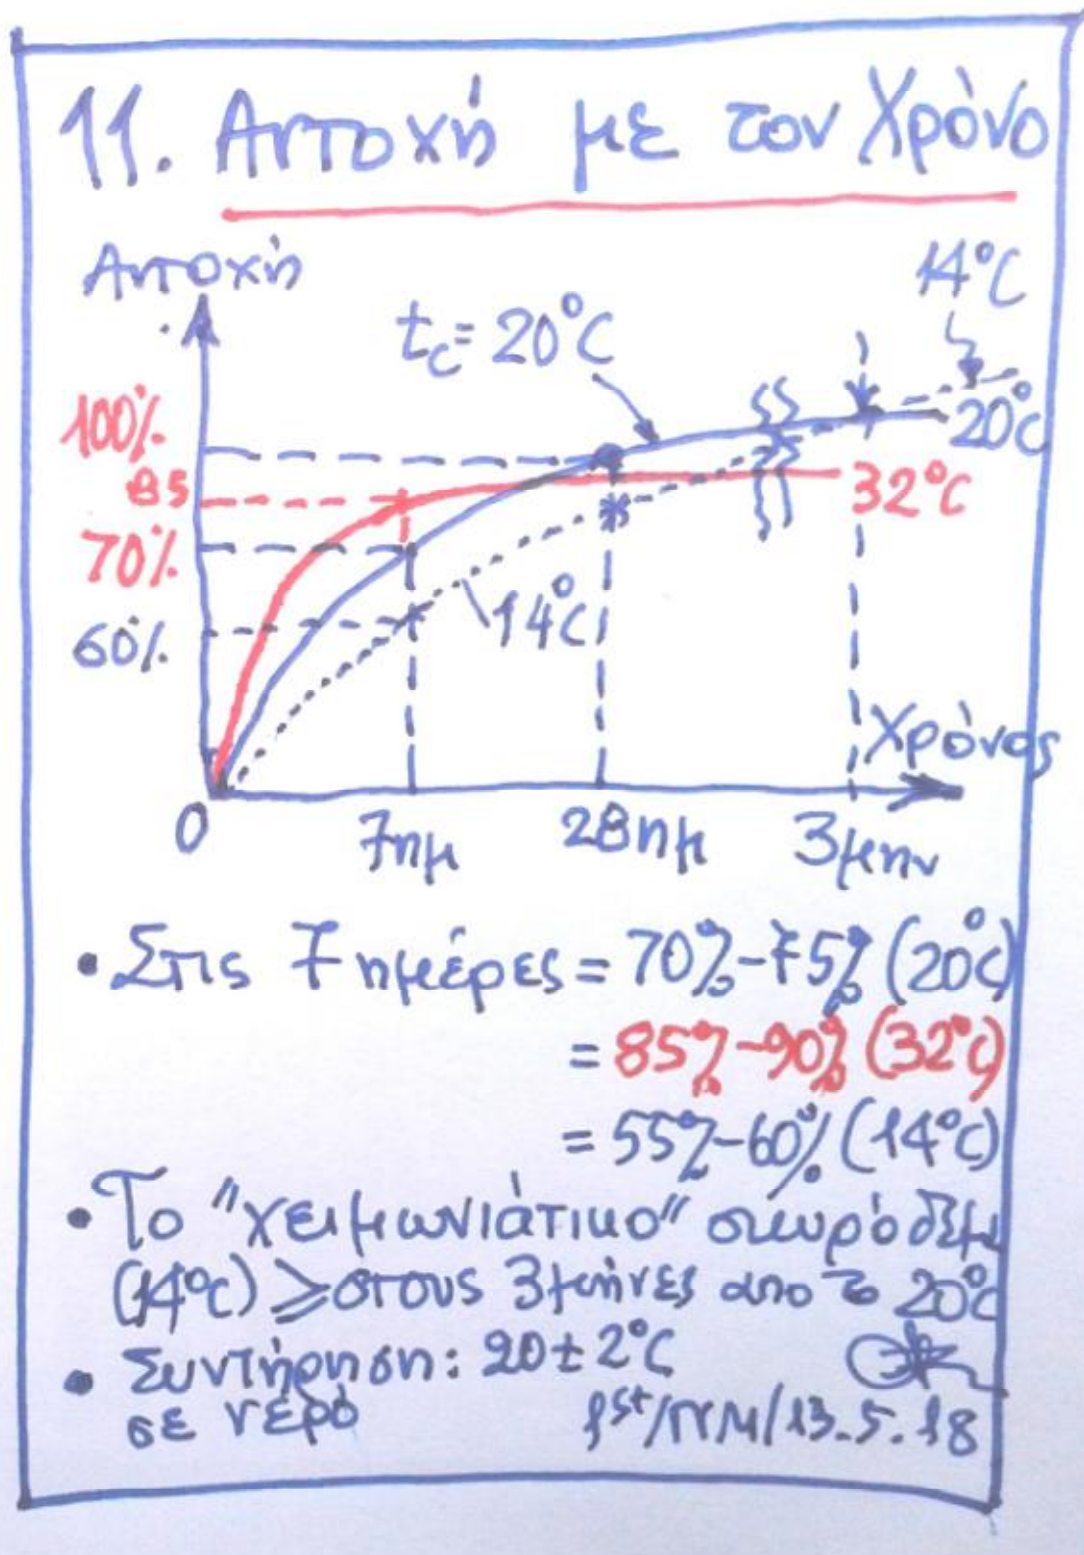 11. Αντοχή με τον Χρόνο
Αντοχή
14°C
tc = 20°C
100%
20°C
85
32°C
70%
14°C
60%
Χρόνος
0
7ημ
28ημ
3μην
• Στις 7 ημέρες = 70%-75% (20°C)
= 85%-90% (32°C)
= 55%-60% (14°C)
• Το "χειμωνιάτικο" σκυρόδεμ
(14°C) ≥ στους 3 μήνες απο το 20°C
• Συντήρηση: 20±2°C
σε νερό
1st/ΠΜ/13.5.18